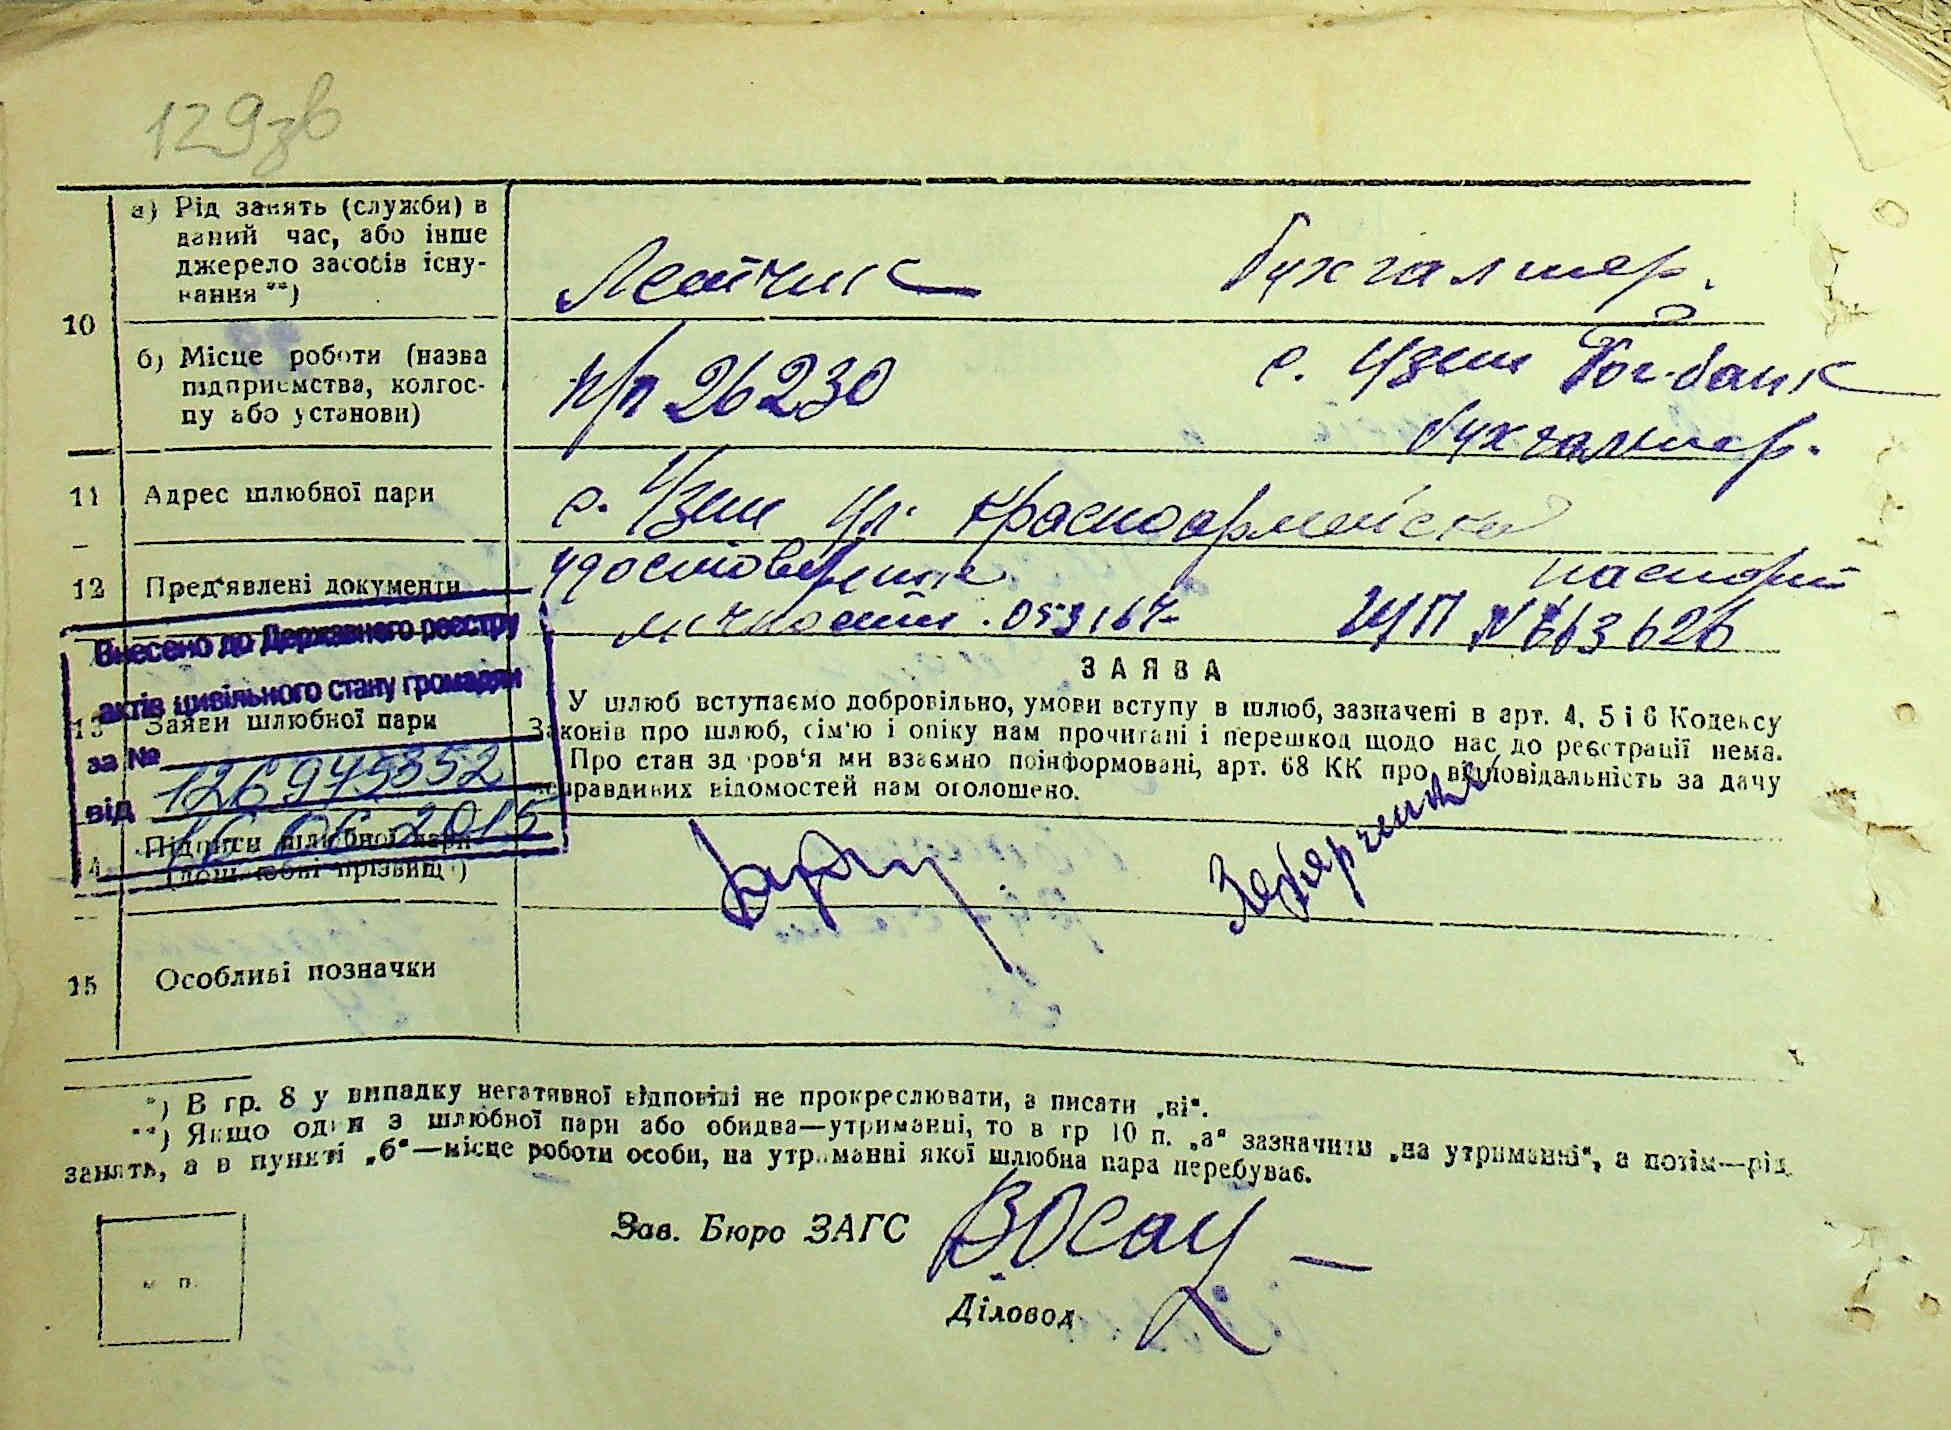 129зв
а) Рід занять (служби) в
даний час, або інше
джерело засобів існу-
вання **)
Летчик
бухгалтер.
10
б) Місце роботи (назва
підприємства, колгос-
пу або установи)
п/п 26230
с. Узин Гос-банк
бухгалтер.
11
Адрес шлюбної пари
с. Узин ул. Красноармейска
12
Пред'явлені документи
удостоверение
личности . 053167
паспорт
ШП № 663626
Внесено до Державного реєстру
актів цивільного стану громадян
за № 126945352
від 16 06 2015
13
Заяви шлюбної пари
ЗАЯВА
У шлюб вступаємо добровільно, умови вступу в шлюб, зазначені в арт. 4, 5 і 6 Кодексу
Законів про шлюб, сім'ю і опіку нам прочитані і перешкод щодо нас до реєстрації нема.
Про стан здоров'я ми взаємно поінформовані, арт. 68 КК про відповідальність за дачу
неправдивих відомостей нам оголошено.
14
Підписи шлюбної пари
(дошлюбні прізвищ*)
15
Особливі позначки
*) В гр. 8 у випадку негативної відповіді не прокреслювати, а писати „ні“.
**) Якщо один з шлюбної пари або обидва—утриманці, то в гр 10 п. „а“ зазначити „на утриманні“, а потім—рід
занять, а в пункті „б“—місце роботи особи, на утриманні якої шлюбна пара перебуває.
Зав. Бюро ЗАГС
Діловод
м. п.